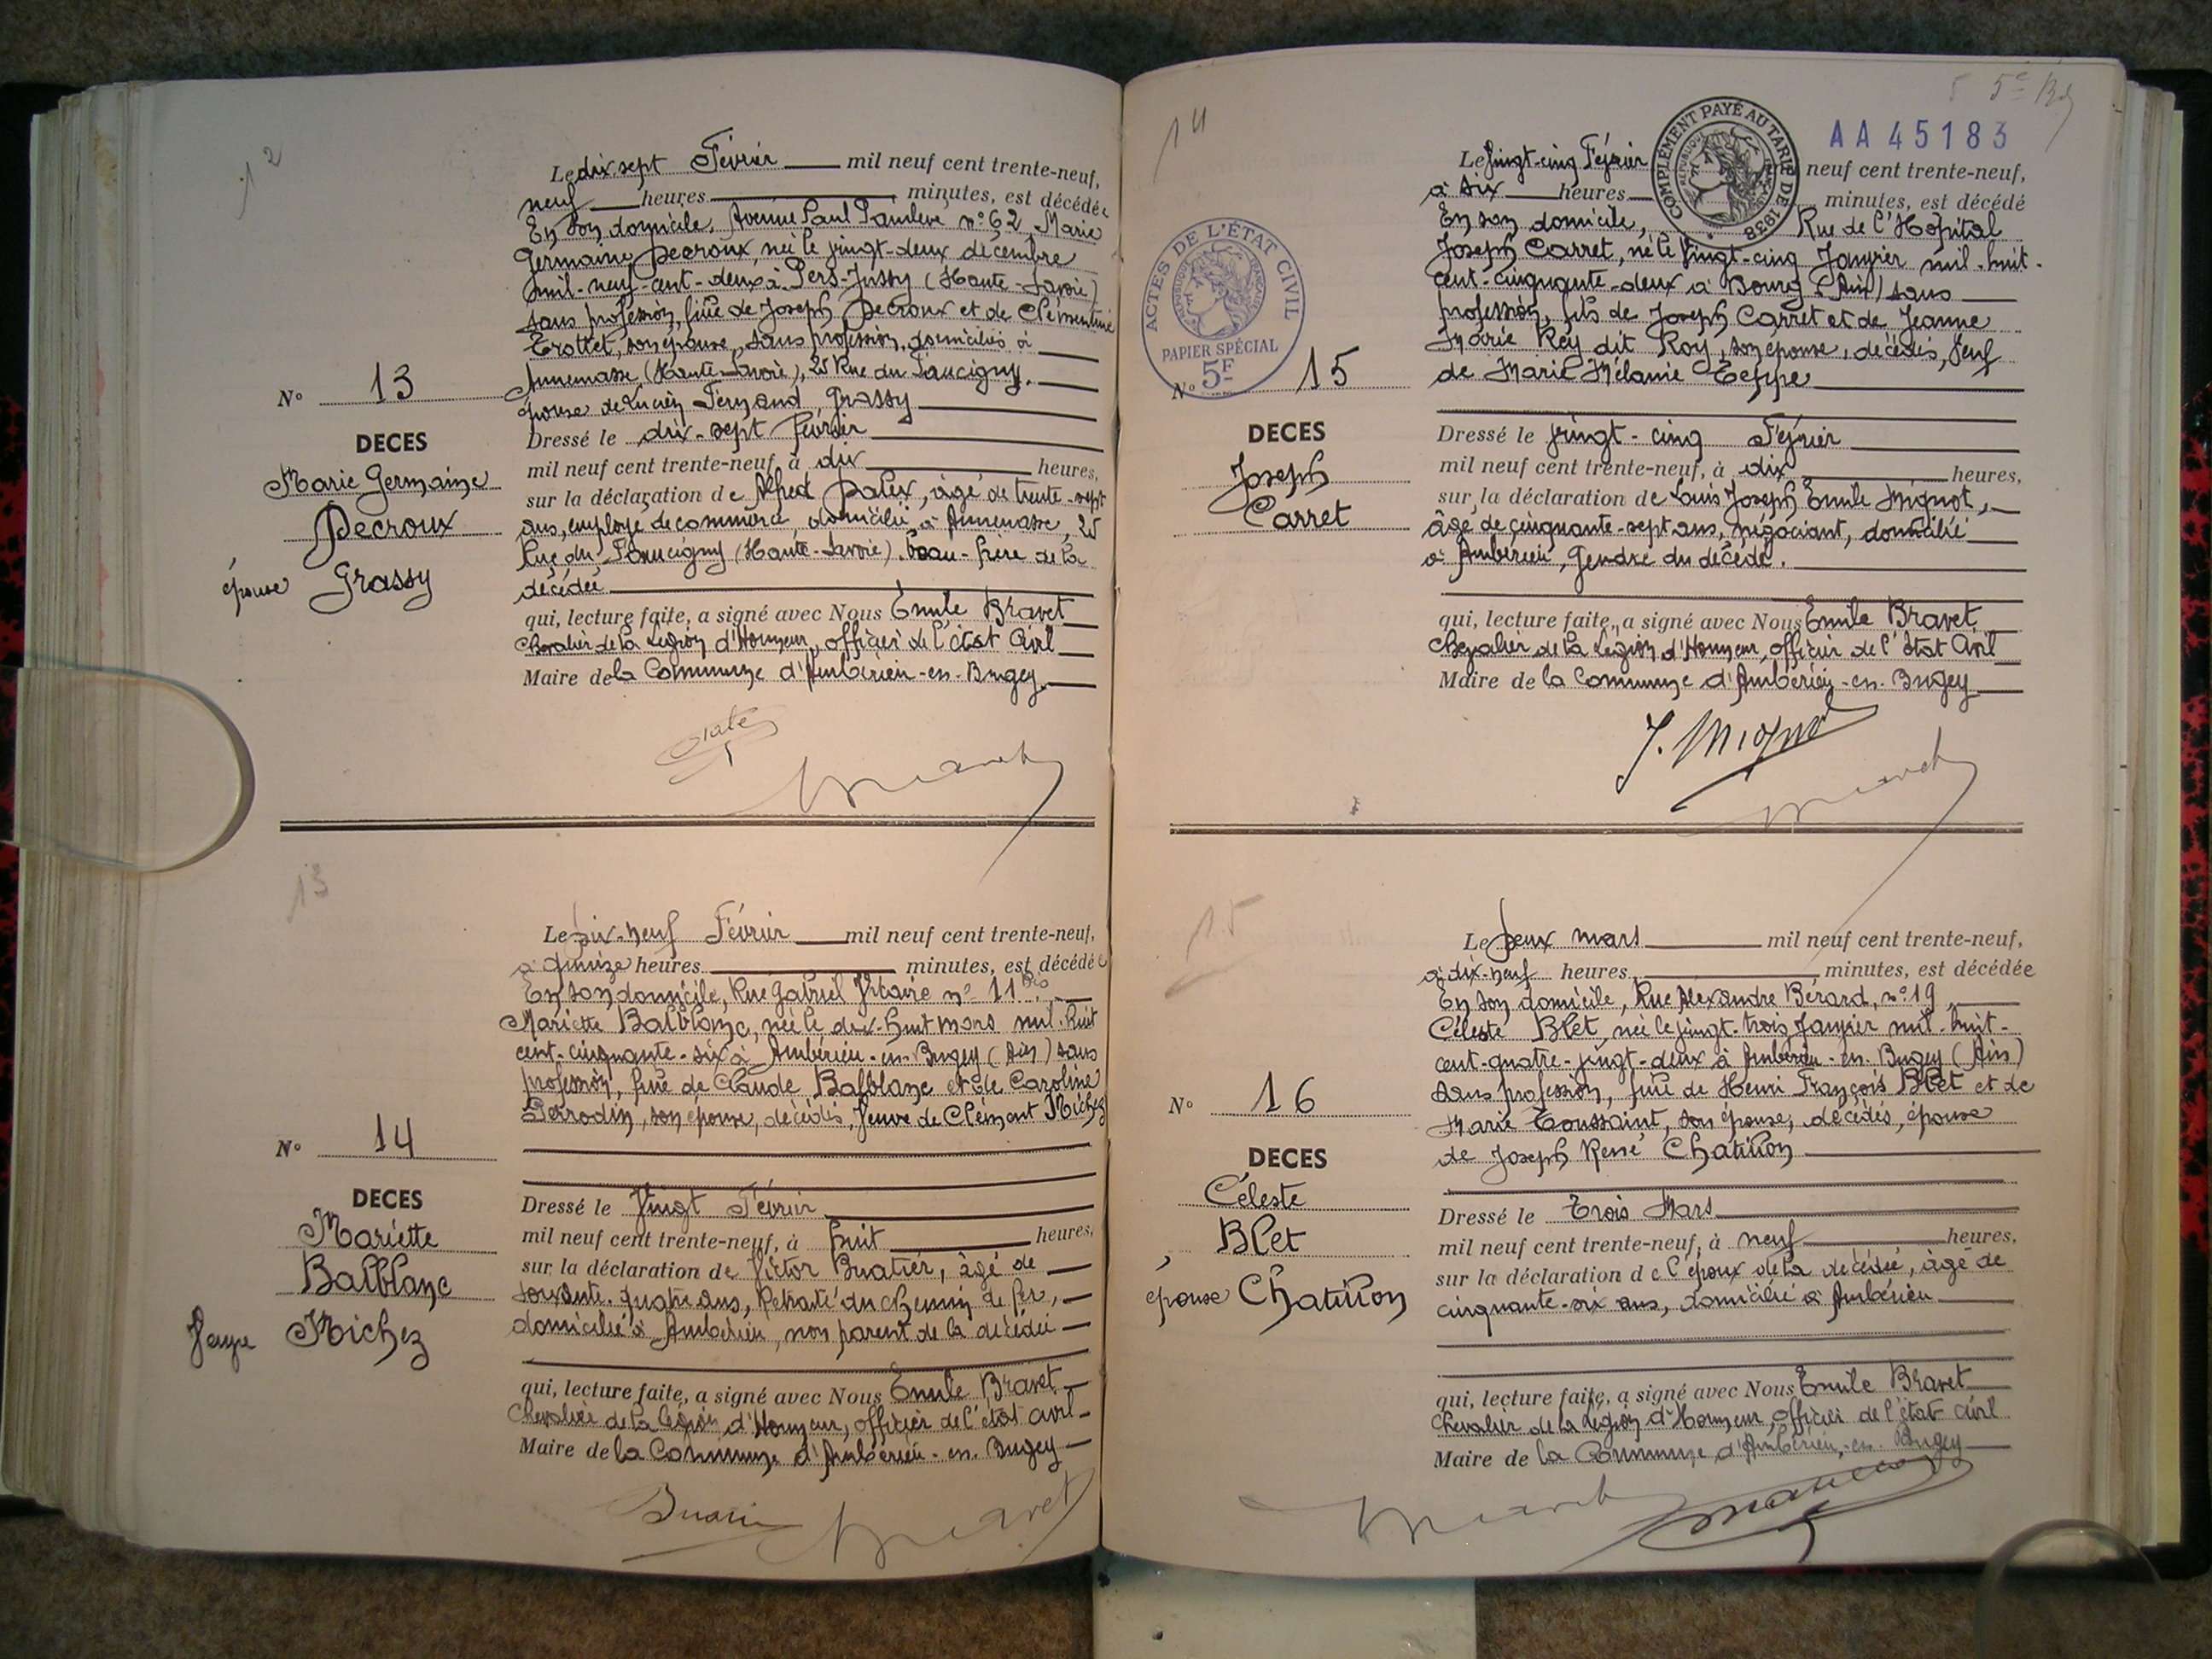 12
Le dix sept Février mil neuf cent trente-neuf,
neuf heures minutes, est décédée
En son domicile, Avenue Paul Painlevé n° 62, Marie
Germaine Decroux, née le vingt-deux décembre
mil-neuf-cent-deux à Pers-Jussy (Haute-Savoie)
sans profession, fille de Joseph Decroux et de Clémentine
Trottet, son épouse, sans profession, domiciliés à
Annemasse (Haute-Savoie), 25 Rue du Faucigny.
épouse de Lucien Fernand Grassy
N° 13
DECES
Marie Germaine
Decroux
épouse Grassy
Dressé le dix-sept février
mil neuf cent trente-neuf, à dix heures,
sur la déclaration de Alfred, âgé de trente-sept
ans, employé de commerce, domicilié à Annemasse, 25
Rue du Faucigny (Haute-Savoie). beau-frère de la
décédée
qui, lecture faite, a signé avec Nous Emile Bravet
Chevalier de la Légion d'Honneur, officier de l'état Civil
Maire de la Commune d'Ambérieu-en-Bugey.
Bravet
13
Le Dix-neuf Février mil neuf cent trente-neuf,
à quinze heures minutes, est décédée
En son domicile, Rue Gabriel Vicaire n° 11 bis,
Mariette Balblanc, née le dix-huit mars mil-huit
cent-cinquante-six à Ambérieu-en-Bugey (Ain) sans
profession, fille de Claude Balblanc et de Caroline
Perrodin, son épouse, décédés, Veuve de Clément Michez
N° 14
DECES
Mariette
Balblanc
Veuve Michez
Dressé le Vingt Février
mil neuf cent trente-neuf, à huit heures,
sur la déclaration de Victor Buatier, âgé de
soixante-quatre ans, Retraité du chemin de fer,
domicilié à Ambérieu, non parent de la décédée
qui, lecture faite, a signé avec Nous Emile Bravet
Chevalier de la Légion d'Honneur, officier de l'état civil
Maire de la Commune d'Ambérieu-en-Bugey
Bravet
14
AA 45183
COMPLÉMENT PAYÉ AU TARIF DE 1938
Le Vingt-cinq Février neuf cent trente-neuf,
à six heures minutes, est décédé
En son domicile, Rue de l'Hôpital
Joseph Carret, né le Vingt-cinq Janvier mil-huit-
cent-cinquante-deux à Bourg (Ain) sans
profession, fils de Joseph Carret et de Jeanne
Marie Rey dit Roy, son épouse, décédés, Veuf
de Marie Mélanie Teppe
ACTES DE L'ÉTAT CIVIL
RÉPUBLIQUE FRANÇAISE
PAPIER SPÉCIAL
5F
N° 15
DECES
Joseph
Carret
Dressé le vingt-cinq Février
mil neuf cent trente-neuf, à dix heures,
sur la déclaration de Louis Joseph Emile Mignot,
âgé de cinquante-sept ans, négociant, domicilié
à Ambérieu, Gendre du décédé.
qui, lecture faite, a signé avec Nous Emile Bravet
Chevalier de la Légion d'Honneur, officier de l'état Civil
Maire de la Commune d'Ambérieu-en-Bugey
J. Mignot
Bravet
15
Le Deux mars mil neuf cent trente-neuf,
à dix-neuf heures, minutes, est décédée
En son domicile, Rue Alexandre Bérard, n° 19,
Céleste Blet, née le vingt-trois Janvier mil-huit-
cent-quatre-vingt-deux à Ambérieu-en-Bugey (Ain)
sans profession, fille de Henri François Blet et de
Marie Toussaint, son épouse, décédés, épouse
de Joseph René Chatillon
N° 16
DECES
Céleste
Blet
épouse Chatillon
Dressé le Trois Mars
mil neuf cent trente-neuf, à neuf heures,
sur la déclaration de l'époux de la décédée, âgé de
cinquante-six ans, domicilié à Ambérieu
qui, lecture faite, a signé avec Nous Emile Bravet
Chevalier de la Légion d'Honneur, officier de l'état civil
Maire de la Commune d'Ambérieu-en-Bugey
Bravet